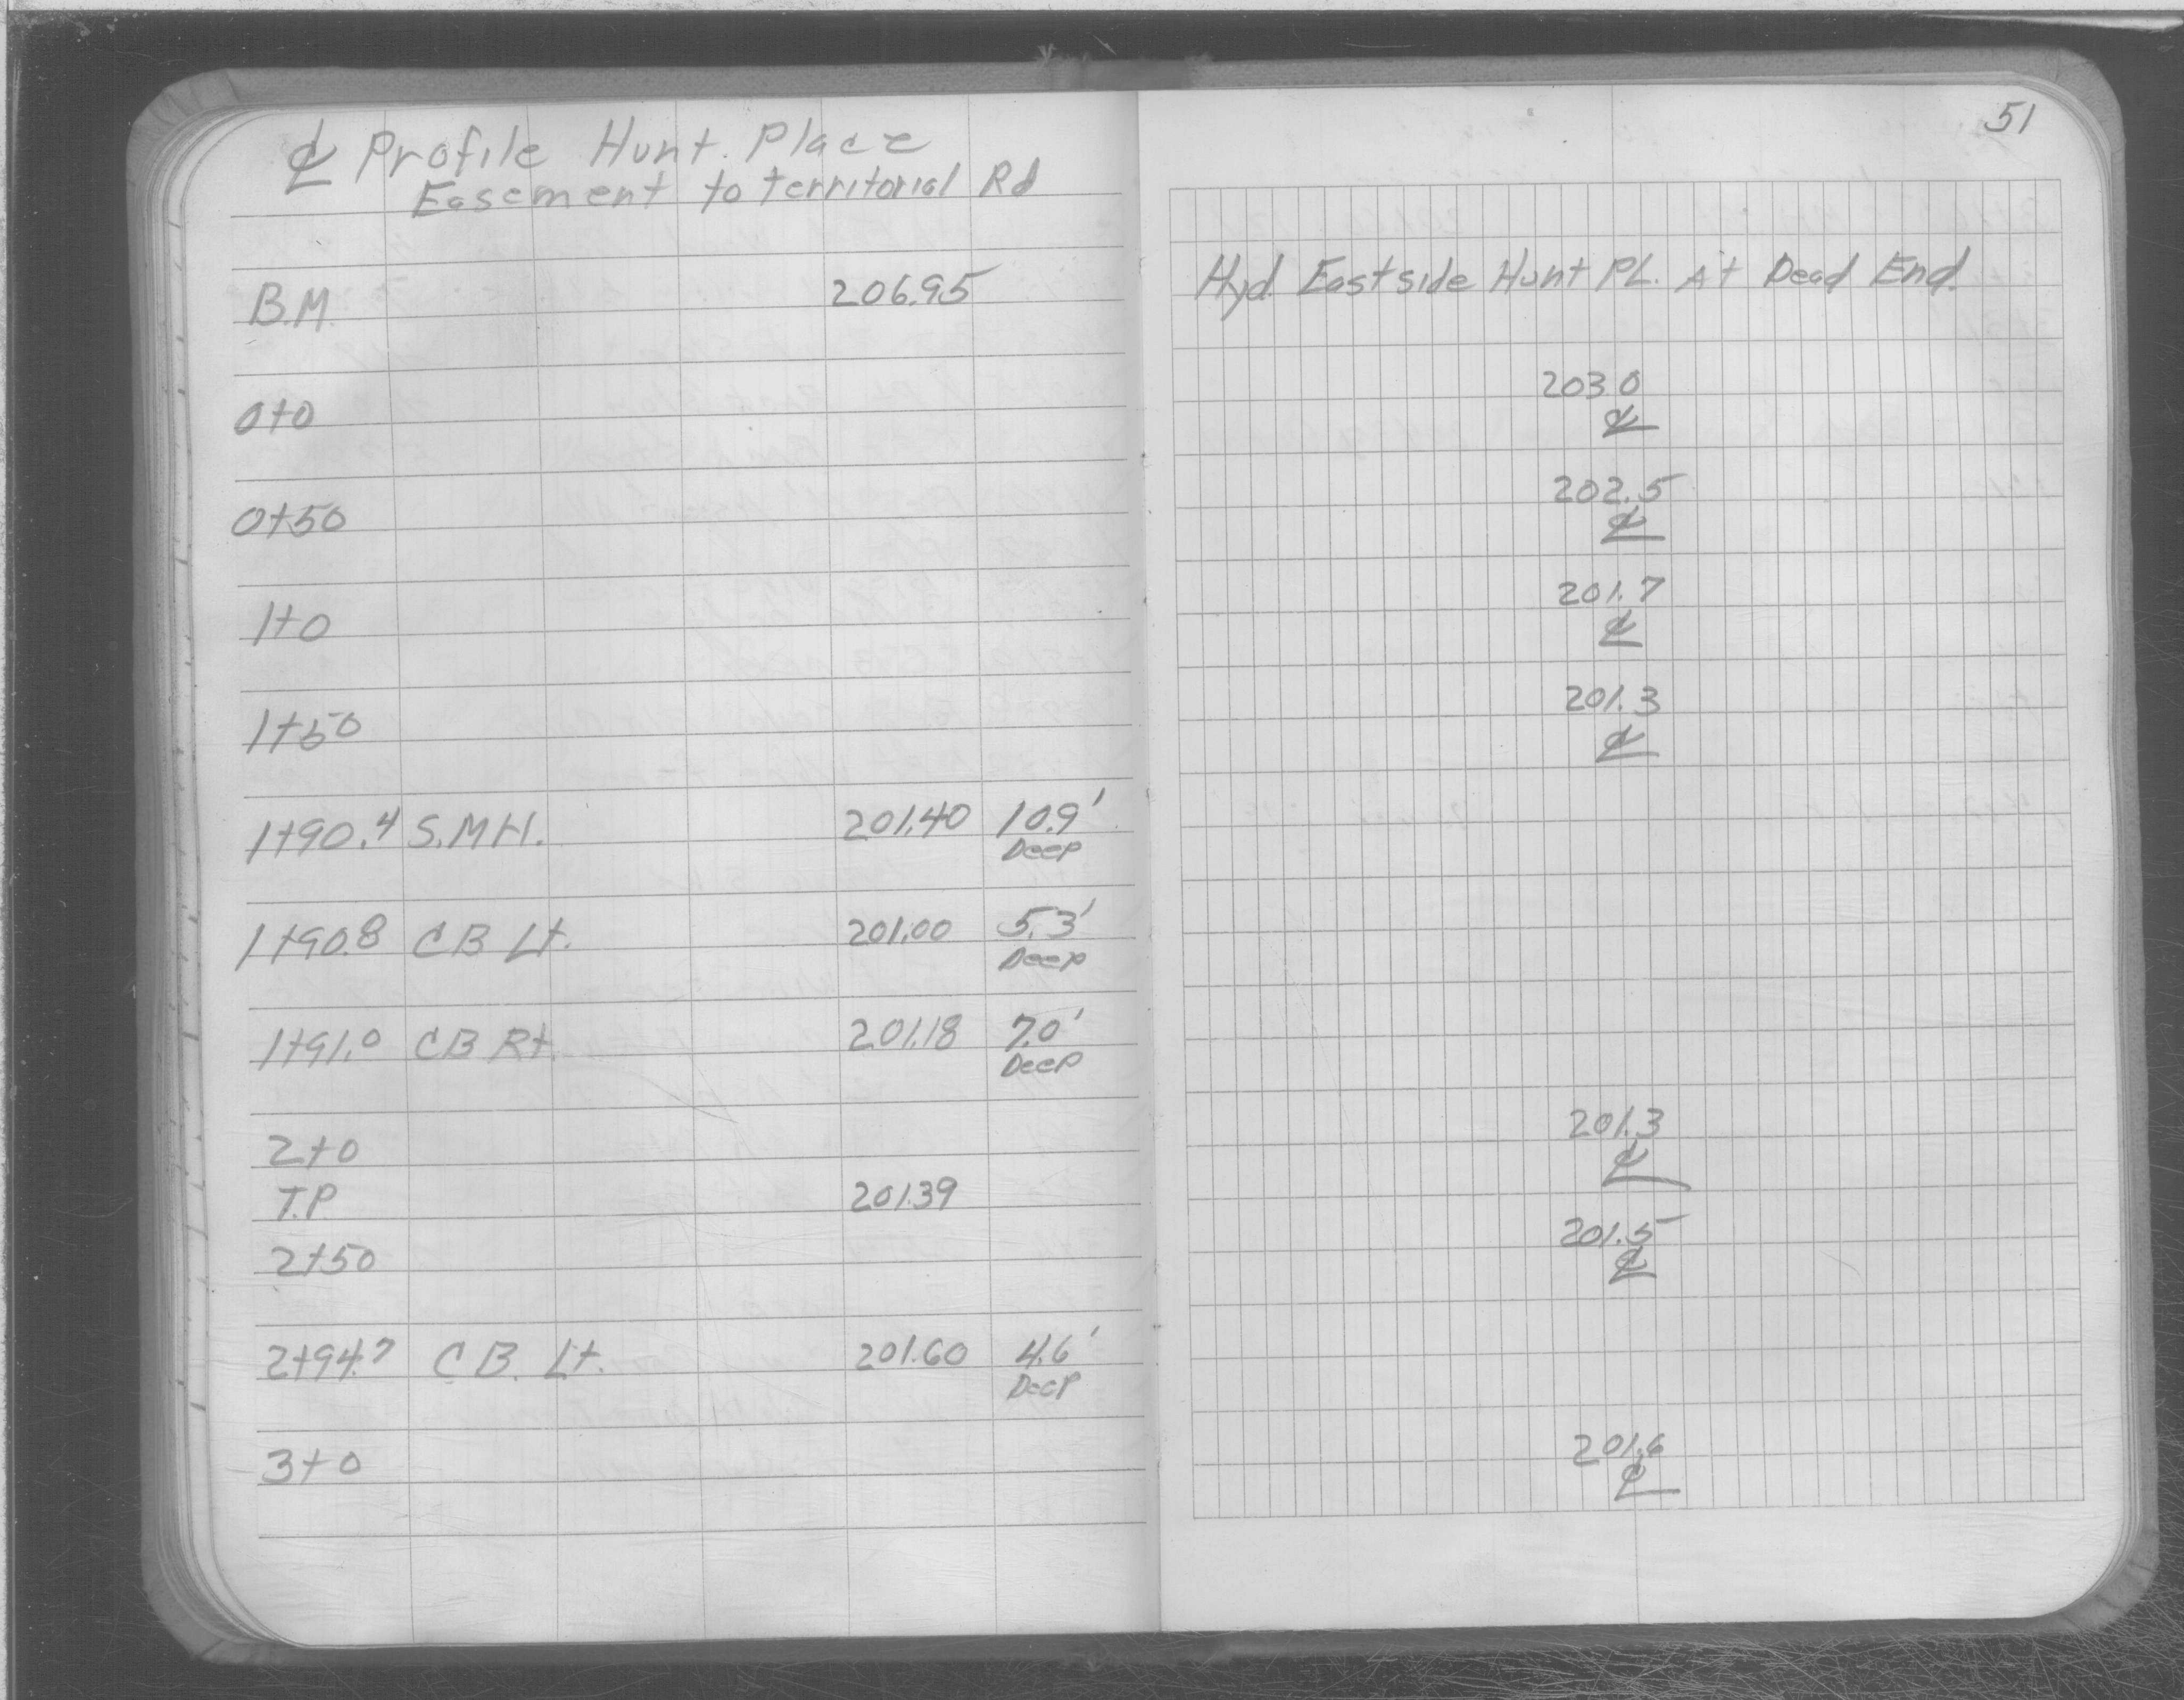 51
℄ Profile Hunt. Place
Easement to territorial Rd
B.M. 206.95 Hyd. East side Hunt PL. At Dead End.
0+0 203.0
℄
0+50 202.5
℄
1+0 201.7
℄
1+50 201.3
℄
1+90.4 S.M.H. 201.40 10.9'
Deep
1+90.8 CB Lt. 201.00 5.3'
Deep
1+91.0 CB Rt. 201.18 7.0'
Deep
2+0 201.3
℄
T.P. 201.39
2+50 201.5
℄
2+94.7 C B. Lt. 201.60 4.6'
Deep
3+0 201.6
℄